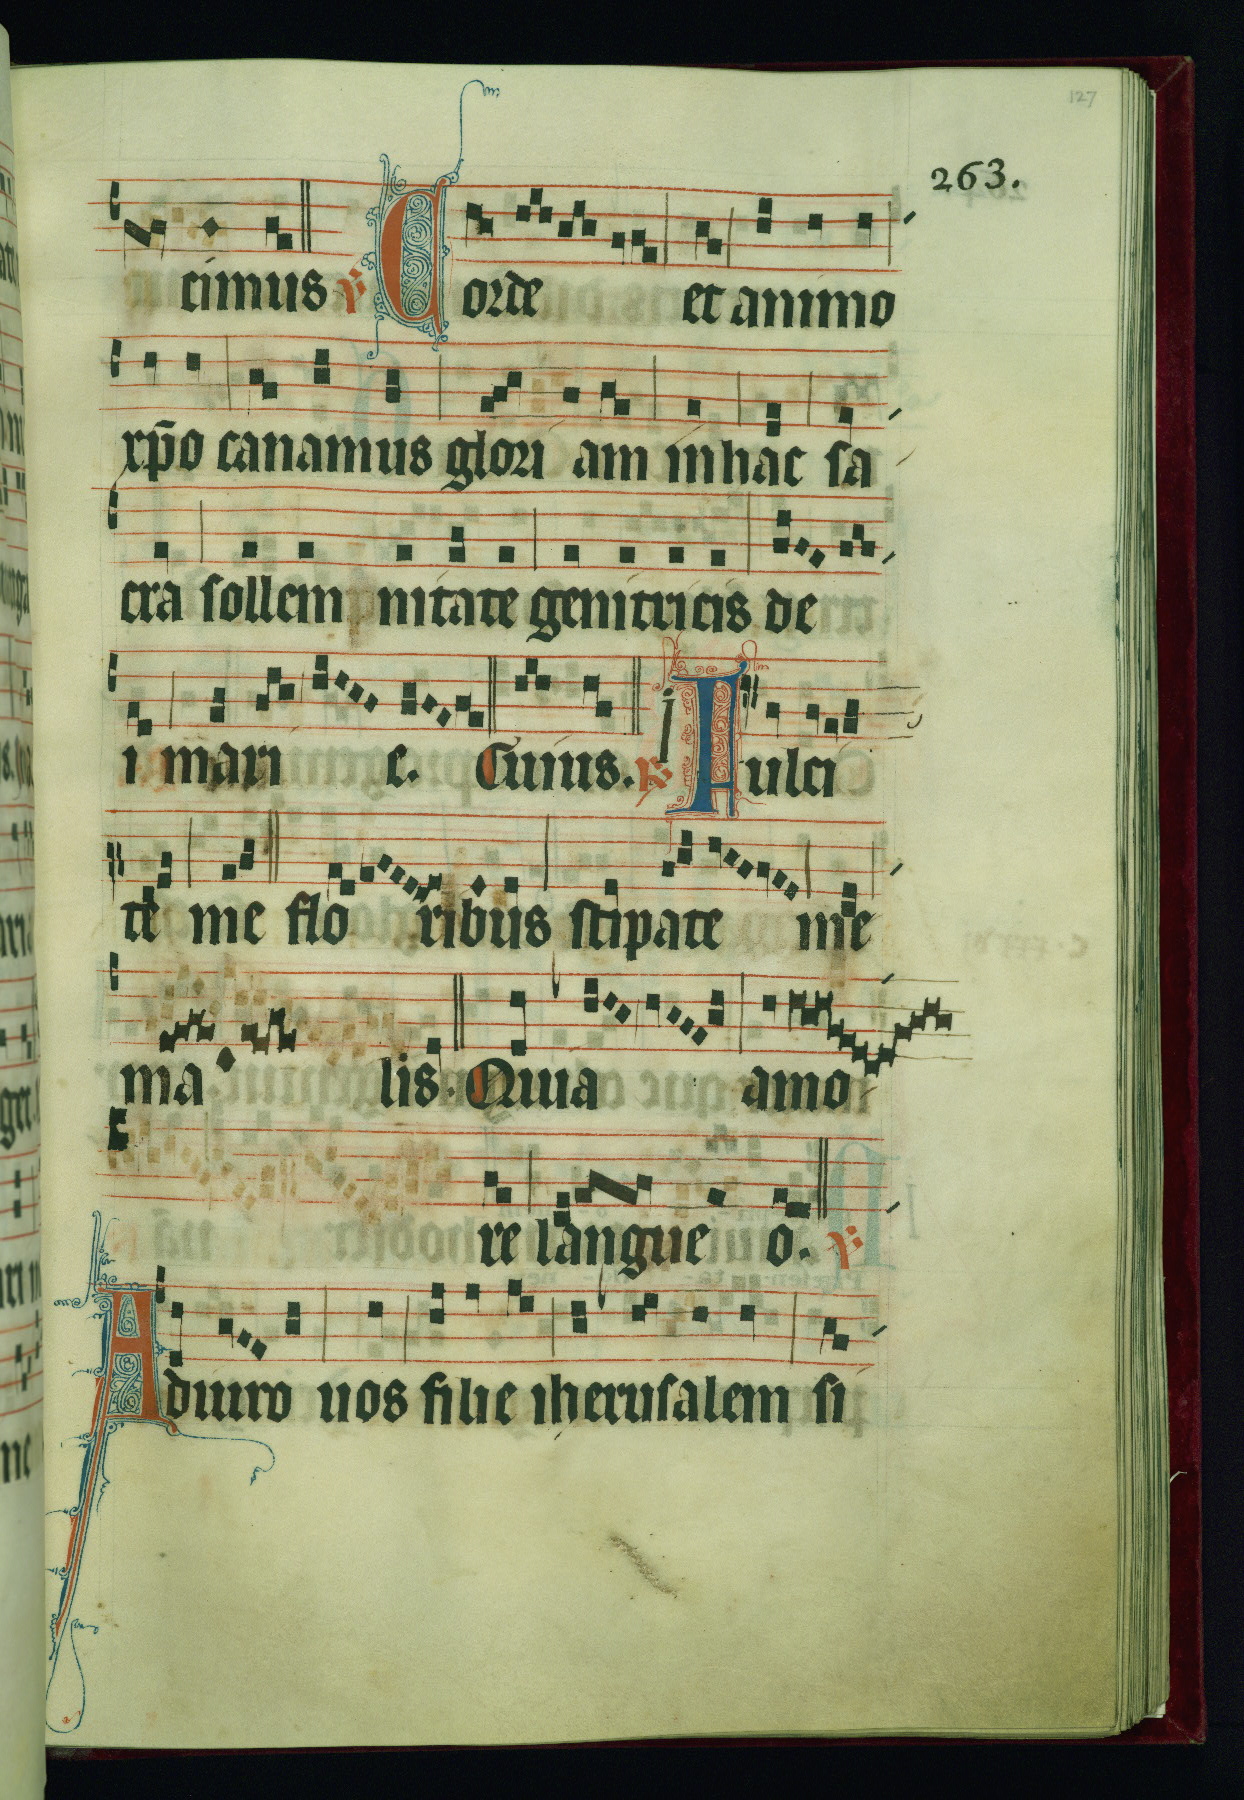 127
263.
cimus ℣ Corde et animo
xp̄o canamus glori am in hac sa
cra sollem nitate genitricis de
i mari e. Cuius. ℟ Fulci
te me flo ribus stipate me
ma lis. Quia amo
re langue o. ℣
Adiuro uos filie iherusalem si